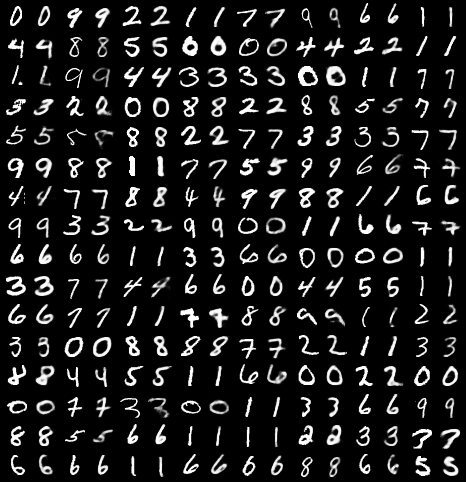 0 0 9 9 2 2 1 1 7 7 9 9 6 6 1 1
4 4 8 8 5 5 0 0 0 0 4 4 2 2 1 1
1 1 9 9 4 4 3 3 3 3 0 0 1 1 7 7
3 3 2 2 0 0 8 8 2 2 8 8 5 5 7 7
5 5 5 8 8 2 2 7 7 3 3 3 3 7 7
9 9 8 8 1 1 7 7 5 5 9 9 6 6 7 7
4 4 7 7 8 8 4 4 9 9 8 8 1 1 6 6
9 9 3 3 2 2 9 9 0 0 1 1 6 6 7 7
6 6 6 6 1 1 3 3 6 6 0 0 0 0 1 1
3 3 7 7 4 4 6 6 0 0 4 4 5 5 1 1
6 6 7 7 1 1 7 7 8 8 9 9 1 1 2 2
3 3 0 0 8 8 8 8 7 7 2 2 1 1 3 3
8 8 4 4 5 5 1 1 6 6 0 0 2 2 0 0
0 0 7 7 3 3 0 0 1 1 3 3 6 6 9 9
8 8 5 5 6 6 1 1 1 1 2 2 3 3 7 7
6 6 6 6 1 1 6 6 6 6 8 8 6 6 5 5